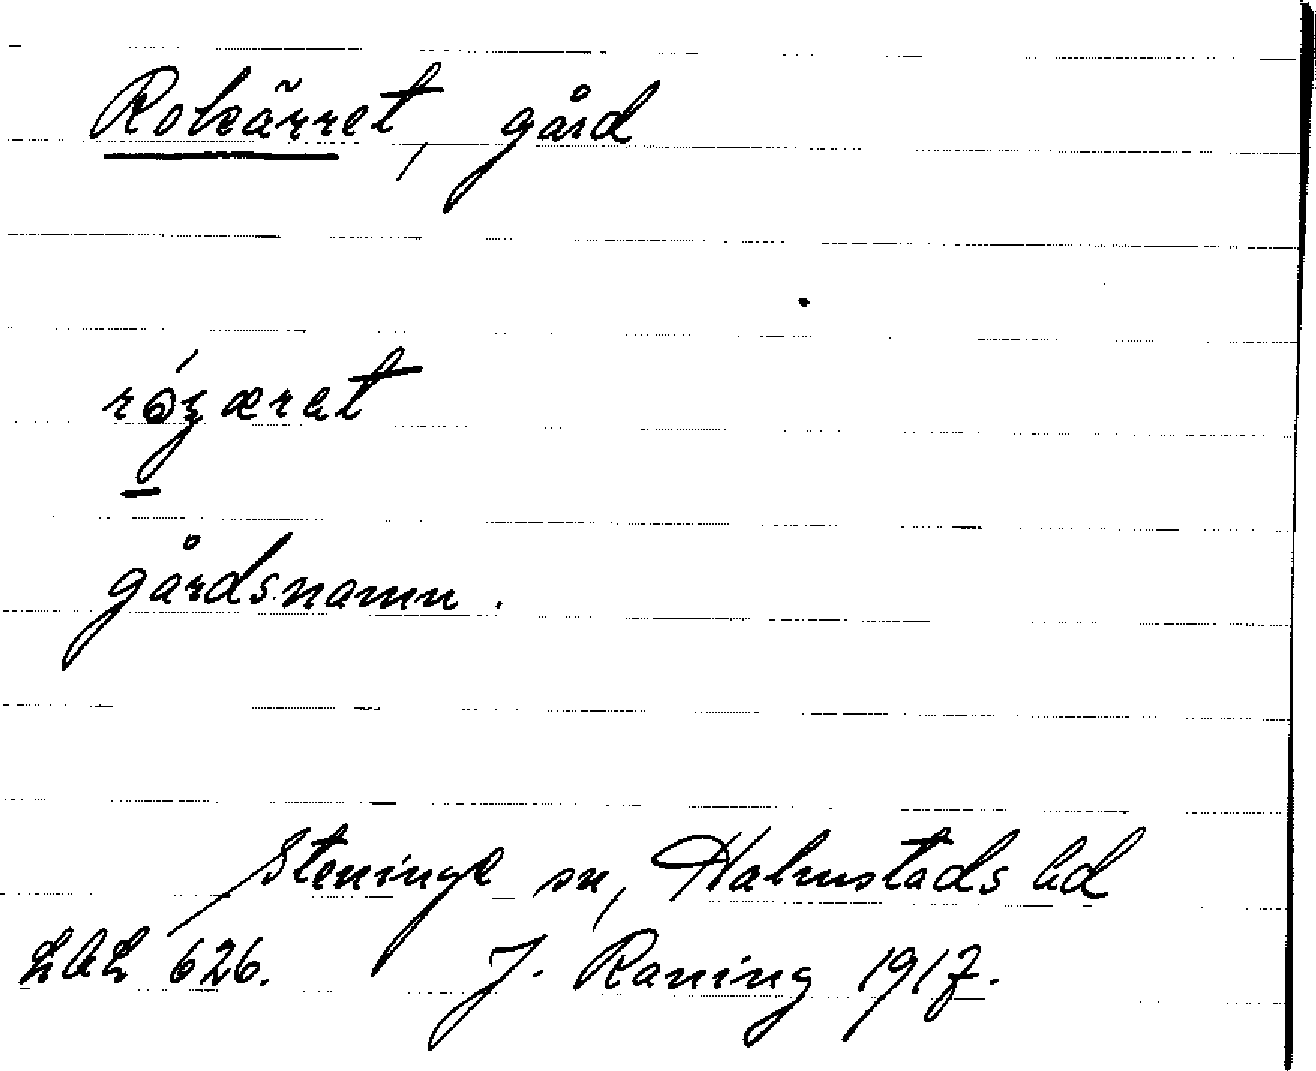 Rokärret, gård
gårdsnamn.
Steninge sn, Halmstads hd
626. J. Raning 1917.